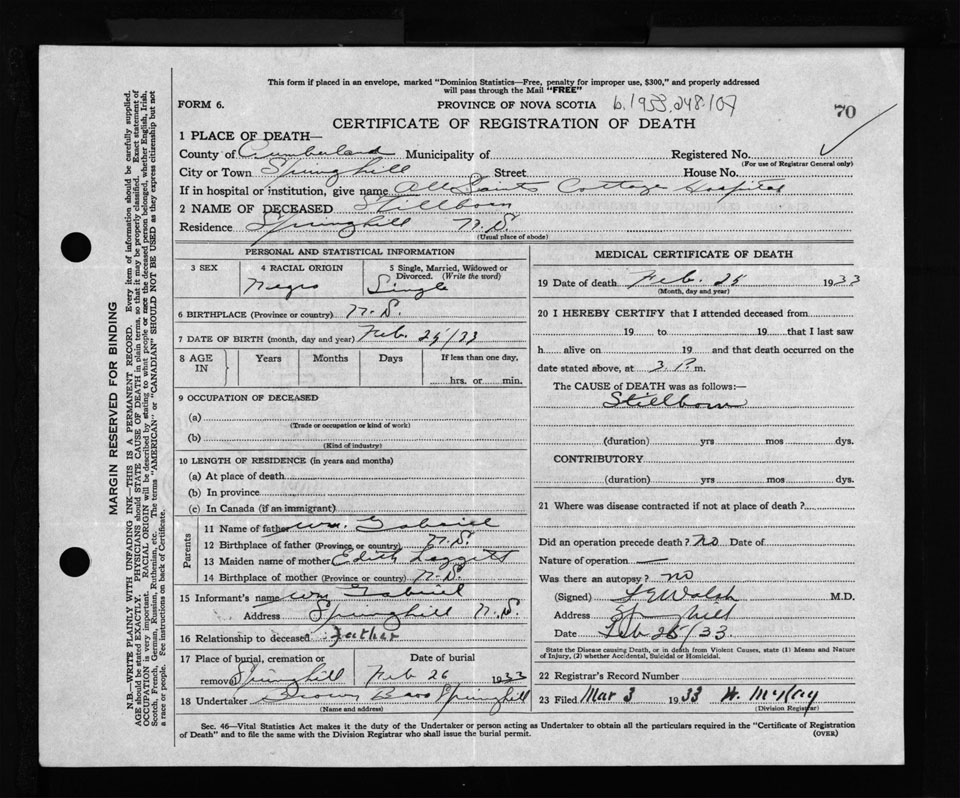 This form if placed in an envelope, marked "Dominion Statistics—Free, penalty for improper use, $300," and properly addressed
will pass through the Mail "FREE"
FORM 6.
PROVINCE OF NOVA SCOTIA b.1933.248107
70
CERTIFICATE OF REGISTRATION OF DEATH
1 PLACE OF DEATH—
County of Cumberland Municipality of Registered No.
(For use of Registrar General only)
City or Town Springhill Street House No.
If in hospital or institution, give name All Saints Cottage Hospital
2 NAME OF DECEASED Stillborn
Residence Springhill N.S.
(Usual place of abode)
PERSONAL AND STATISTICAL INFORMATION
3 SEX 4 RACIAL ORIGIN 5 Single, Married, Widowed or
Divorced. (Write the word)
Negro Single
6 BIRTHPLACE (Province or country) N.S.
7 DATE OF BIRTH (month, day and year) Feb. 25/33
8 AGE IN Years Months Days If less than one day,
hrs. or min.
9 OCCUPATION OF DECEASED
(a)
(Trade or occupation or kind of work)
(b)
(Kind of industry)
10 LENGTH OF RESIDENCE (in years and months)
(a) At place of death
(b) In province
(c) In Canada (if an immigrant)
Parents
11 Name of father Wm. Gabriel
12 Birthplace of father (Province or country) N.S.
13 Maiden name of mother Edith
14 Birthplace of mother (Province or country) N.S.
15 Informant's name Wm Gabriel
Address Springhill N.S.
16 Relationship to deceased Father
17 Place of burial, cremation or Date of burial
removal Springhill Feb 26 1933
18 Undertaker Brown Bros Springhill
(Name and address)
MEDICAL CERTIFICATE OF DEATH
19 Date of death Feb. 25 1933
(Month, day and year)
20 I HEREBY CERTIFY that I attended deceased from
19 to 19 that I last saw
h alive on 19 and that death occurred on the
date stated above, at 3. P. m.
The CAUSE of DEATH was as follows:—
Stillborn
(duration) yrs mos dys.
CONTRIBUTORY
(duration) yrs mos dys.
21 Where was disease contracted if not at place of death?
Did an operation precede death? no Date of
Nature of operation —
Was there an autopsy? no
(Signed) Walsh M.D.
Address Sp hill
Date Feb 25/33.
State the Disease causing Death, or in death from Violent Causes, state (1) Means and Nature
of Injury, (2) whether Accidental, Suicidal or Homicidal.
22 Registrar's Record Number
23 Filed Mar 3 1933 H. McKay
(Division Registrar)
Sec. 46—Vital Statistics Act makes it the duty of the Undertaker or person acting as Undertaker to obtain all the particulars required in the "Certificate of Registration
of Death" and to file the same with the Division Registrar who shall issue the burial permit.
(OVER)
MARGIN RESERVED FOR BINDING
N.B.—WRITE PLAINLY WITH UNFADING INK—THIS IS A PERMANENT RECORD. Every item of information should be carefully supplied.
AGE should be stated EXACTLY. PHYSICIANS should STATE CAUSE OF DEATH in plain terms, so that it may be properly classified. Exact statement of
OCCUPATION is very important. RACIAL ORIGIN will be described by stating to what people or race the deceased person belonged, whether English, Irish,
Scotch, French, German, Russian, Ruthenian, etc. The terms "AMERICAN" or "CANADIAN" SHOULD NOT BE USED as they express citizenship but not
a race or people. See instructions on back of Certificate.